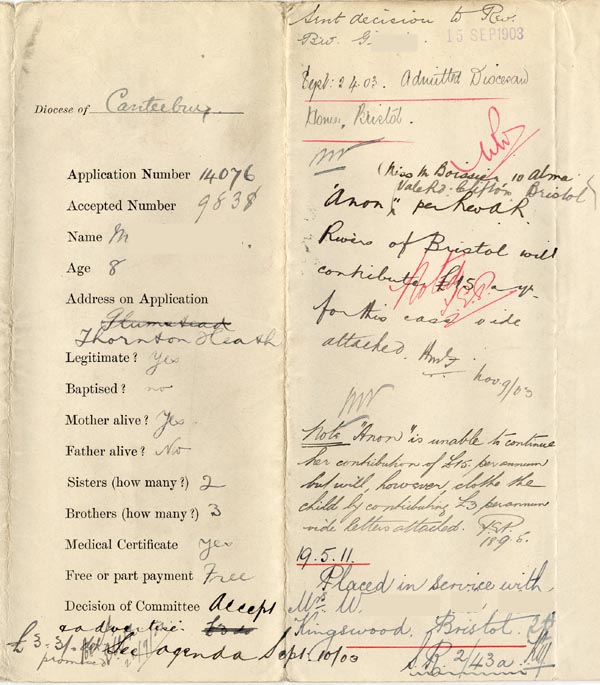 Diocese of Canterbury
Application Number 14076
Accepted Number 9838
Name M
Age 8
Address on Application
Plumstead
Thornton Heath
Legitimate? Yes
Baptised? no
Mother alive? Yes
Father alive? No
Sisters (how many?) 2
Brothers (how many?) 3
Medical Certificate Yes
Free or part payment Free
Decision of Committee Accept
& advertise.
£3-3/-
promised
See agenda Sept. 10/03
Sent decision to Rev.
Bw. G.
15 SEP 1903
Sept: 24.03. Admitted Diocesan
Home, Bristol.
(Miss M Boissier 10 Alma
Vale Rd. Clifton Bristol)
"Anon", per Rev A.R.
Rivers of Bristol will
contribute £15 a yr.
for this case vide
attached.
Nov 9/03
Noted
Note "Anon" is unable to continue
her contribution of £15 per annum
but will, however, clothe the
child by contributing £3 per annum
vide letters attached.
19.5.11.
Placed in service with
Mrs W.
Kingswood. Bristol.
S.R. 2/43a.